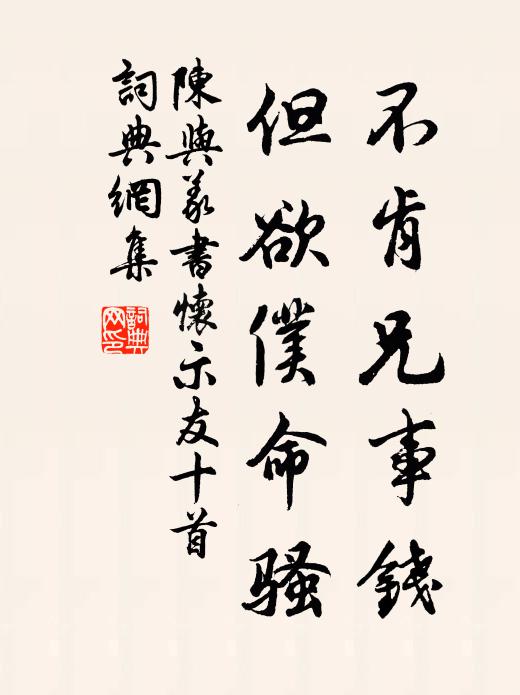 不肯兄事錢
但欲僕命騷
陳與義書懷示友十首
詞典網集
詞典网印